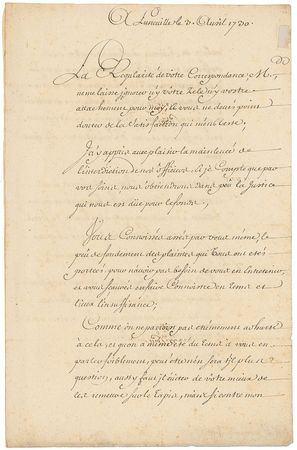 A Luneville le 3. Avril 1730.
La Regularité de votre Correspondance M.
ne me laisse ignorer n'y vôtre Zele n'y vostre
attachement pour moy, & vous ne devés point
douter de la Satisfaction qui m'en reste,
J'ay appris avec plaisir la maintenüe de
l'interdiction de nos officiers, & je Compte que par
vos soins nous obtiendrons dans peu la Justice
qui nous est düe pour le fonds,
Vous Connoissés assés par vous même, le
peu de fondement des plaintes qui vous ont esté
portées pour n'avoir pas besoin de vous en Entretenir,
et vous sçavés en faire Connoistre en tems et
lieux l'insuffisance;
Comme on ne paroist pas extrêmement attaché
à cela, et qu'on a même esté du tems à vous en
parler foiblement, peut être n'en sera t'il plus
question, aussy faut il éviter de votre mieux de
les remettre sur le Tapis, mais si contre mon